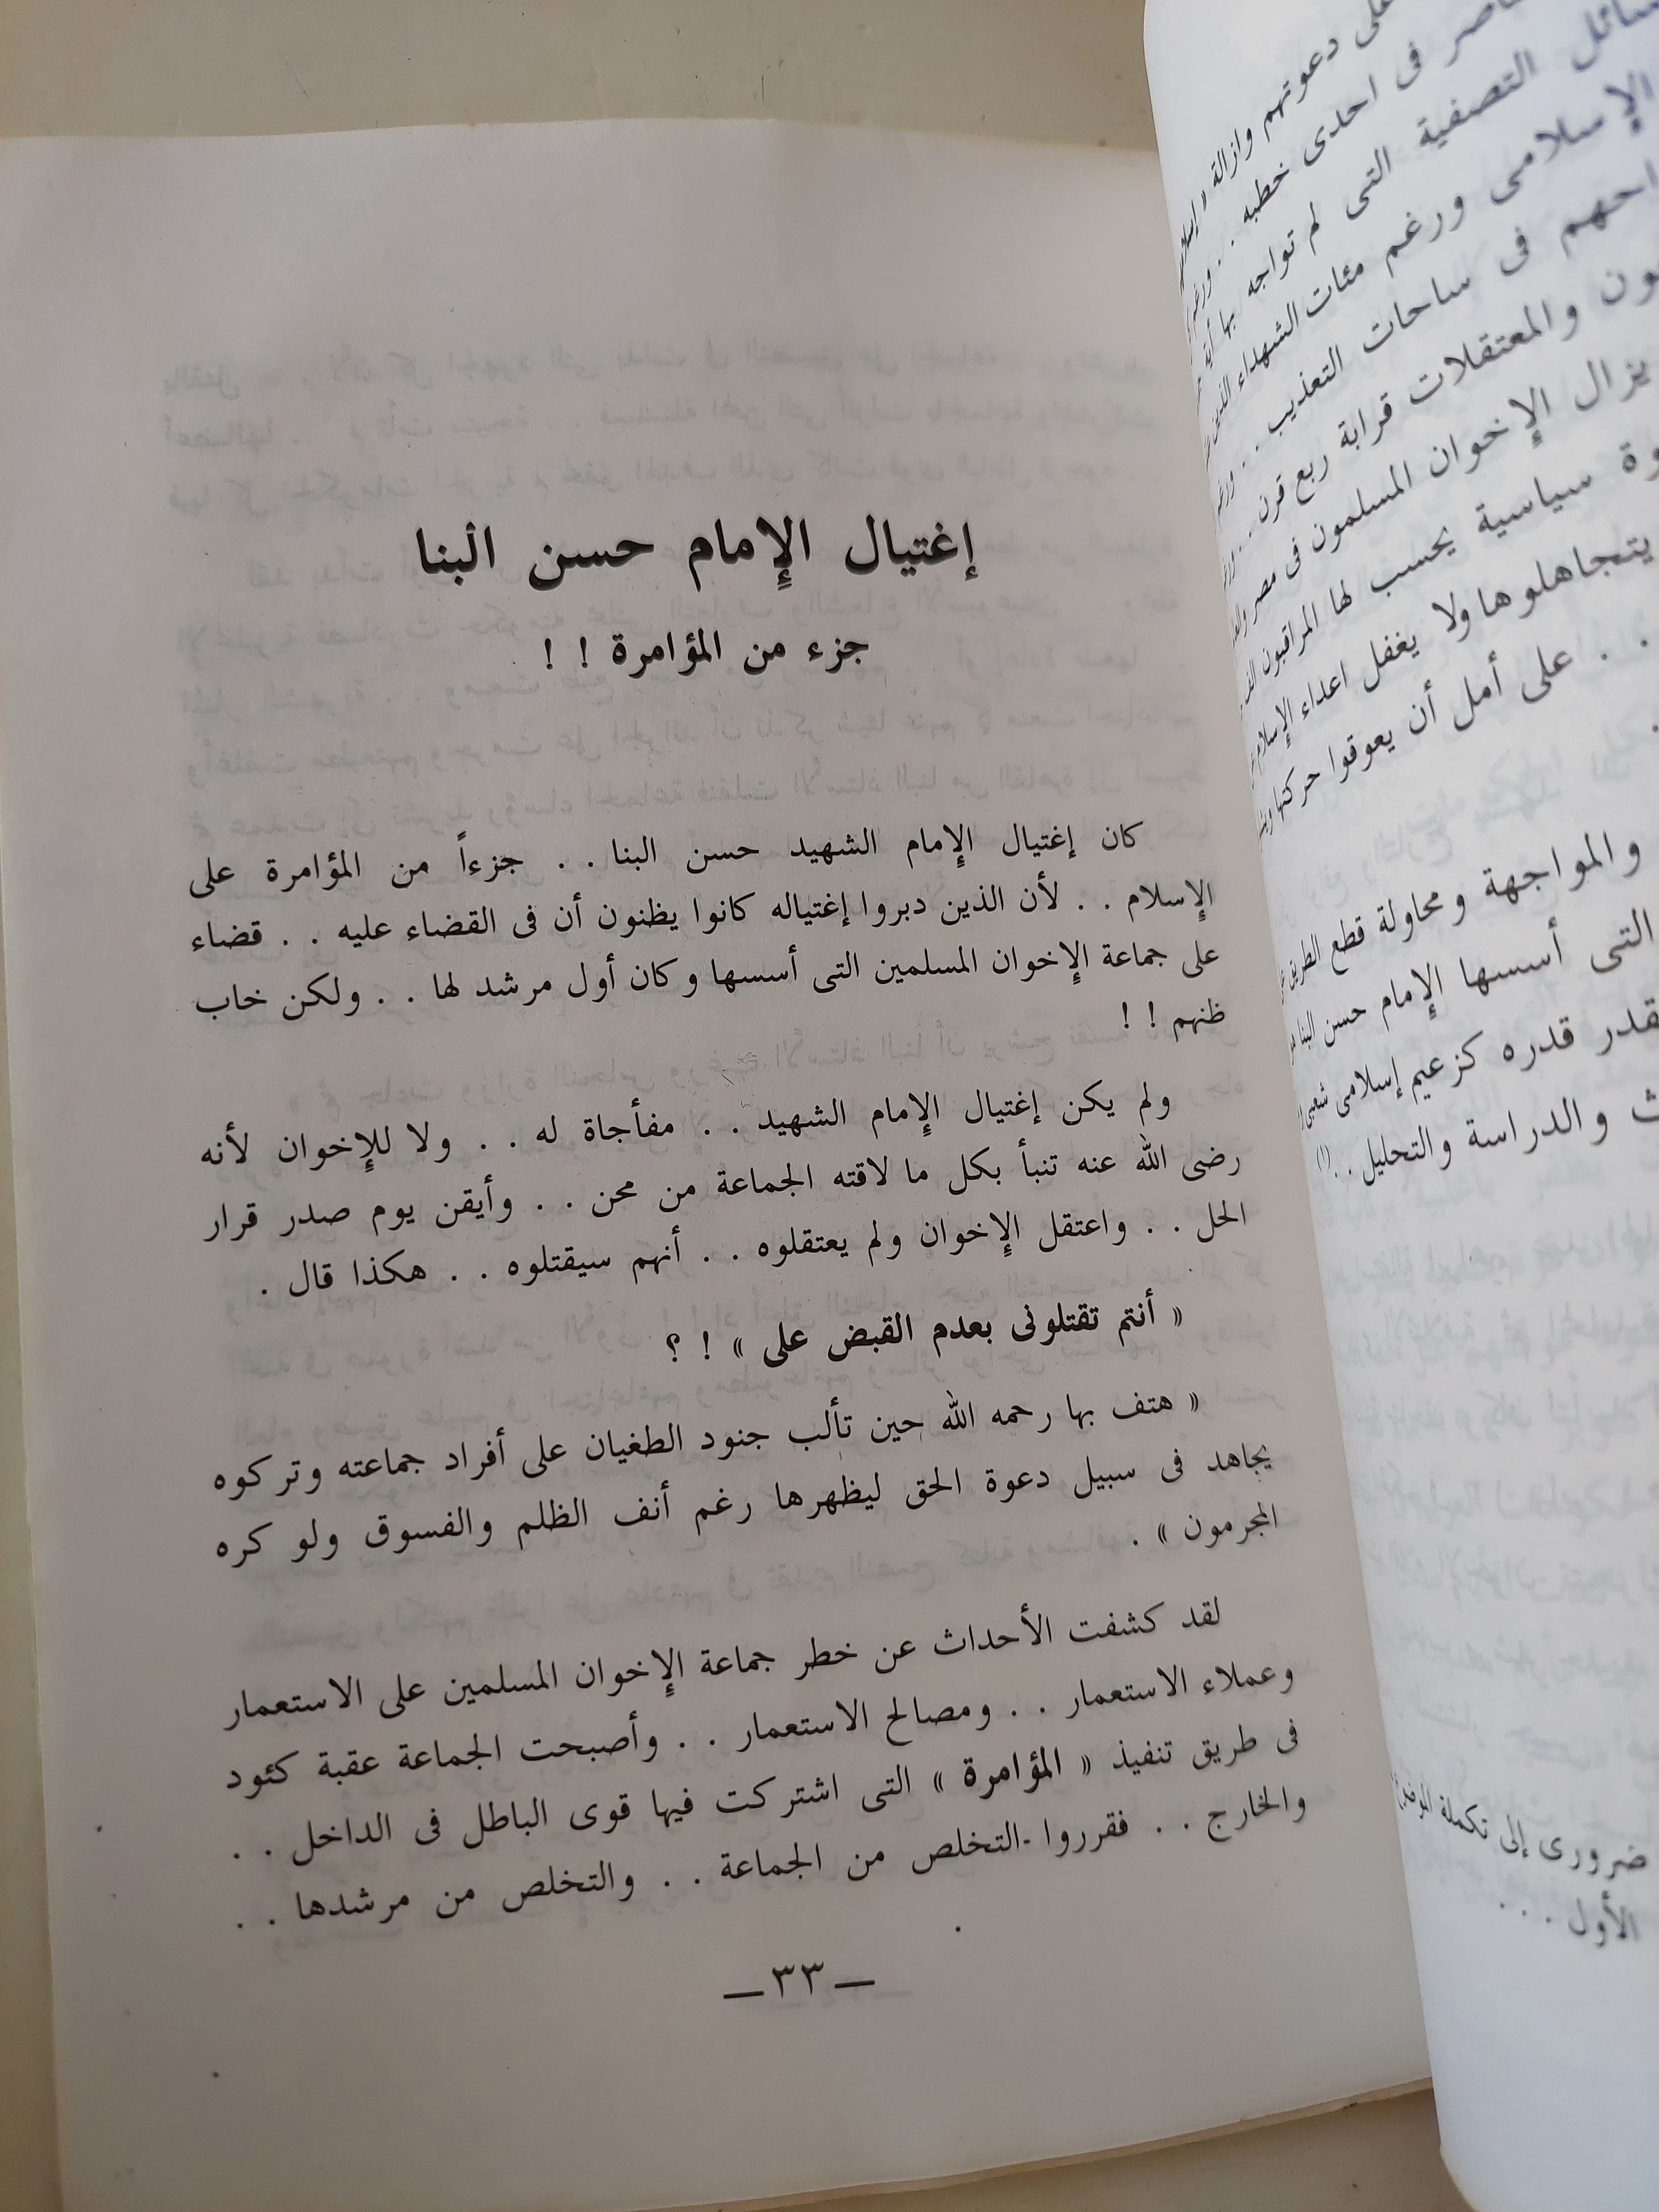 إغتيال الإمام حسن البنا
جزء من المؤامرة ! !
كان إغتيال الإمام الشهيد حسن البنا . . جزءاً من المؤامرة على
الإسلام . . لأن الذين دبروا إغتياله كانوا يظنون أن فى القضاء عليه . . قضاء
على جماعة الإخوان المسلمين التى أسسها وكان أول مرشد لها . . ولكن خاب
ظنهم ! !
ولم يكن إغتيال الإمام الشهيد . . مفأجاة له . . ولا للإخوان لأنه
رضى الله عنه تنبأ بكل ما لاقته الجماعة من محن . . وأيقن يوم صدر قرار
الحل . . واعتقل الإخوان ولم يعتقلوه . . أنهم سيقتلوه . . هكذا قال .
« أنتم تقتلونى بعدم القبض على » ! ؟
« هتف بها رحمه الله حين تألب جنود الطغيان على أفراد جماعته وتركوه
يجاهد فى سبيل دعوة الحق ليظهرها رغم أنف الظلم والفسوق ولو كره
المجرمون » .
لقد كشفت الأحداث عن خطر جماعة الإخوان المسلمين على الاستعمار
وعملاء الاستعمار . . ومصالح الاستعمار . . وأصبحت الجماعة عقبة كئود
فى طريق تنفيذ « المؤامرة » التى اشتركت فيها قوى الباطل فى الداخل . .
والخارج . . فقرروا التخلص من الجماعة . . والتخلص من مرشدها . .
— ٣٣ —
دعوتهم وازالة
فى احدى خطبه . .
التصفية التى لم تواجه بها أية
الإسلامى ورغم مئات الشهداء
فى ساحات التعذيب . .
والمعتقلات قرابة ربع قرن . .
يزال الإخوان المسلمون فى مصر
سياسية يحسب لها المراقبون
يتجاهلوها ولا يغفل اعداء الإسلام
. . على أمل أن يعوقوا حركتها
والمواجهة ومحاولة قطع الطريق
التى أسسها الإمام حسن البنا
قدره كزعيم إسلامى
والدراسة والتحليل . . (١)
ضرورى إلى تكملة
الأول . . .